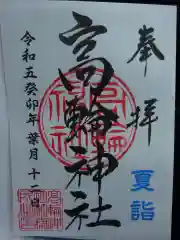 奉拝
夏詣
高輪神社
令和五癸卯年葉月十二日